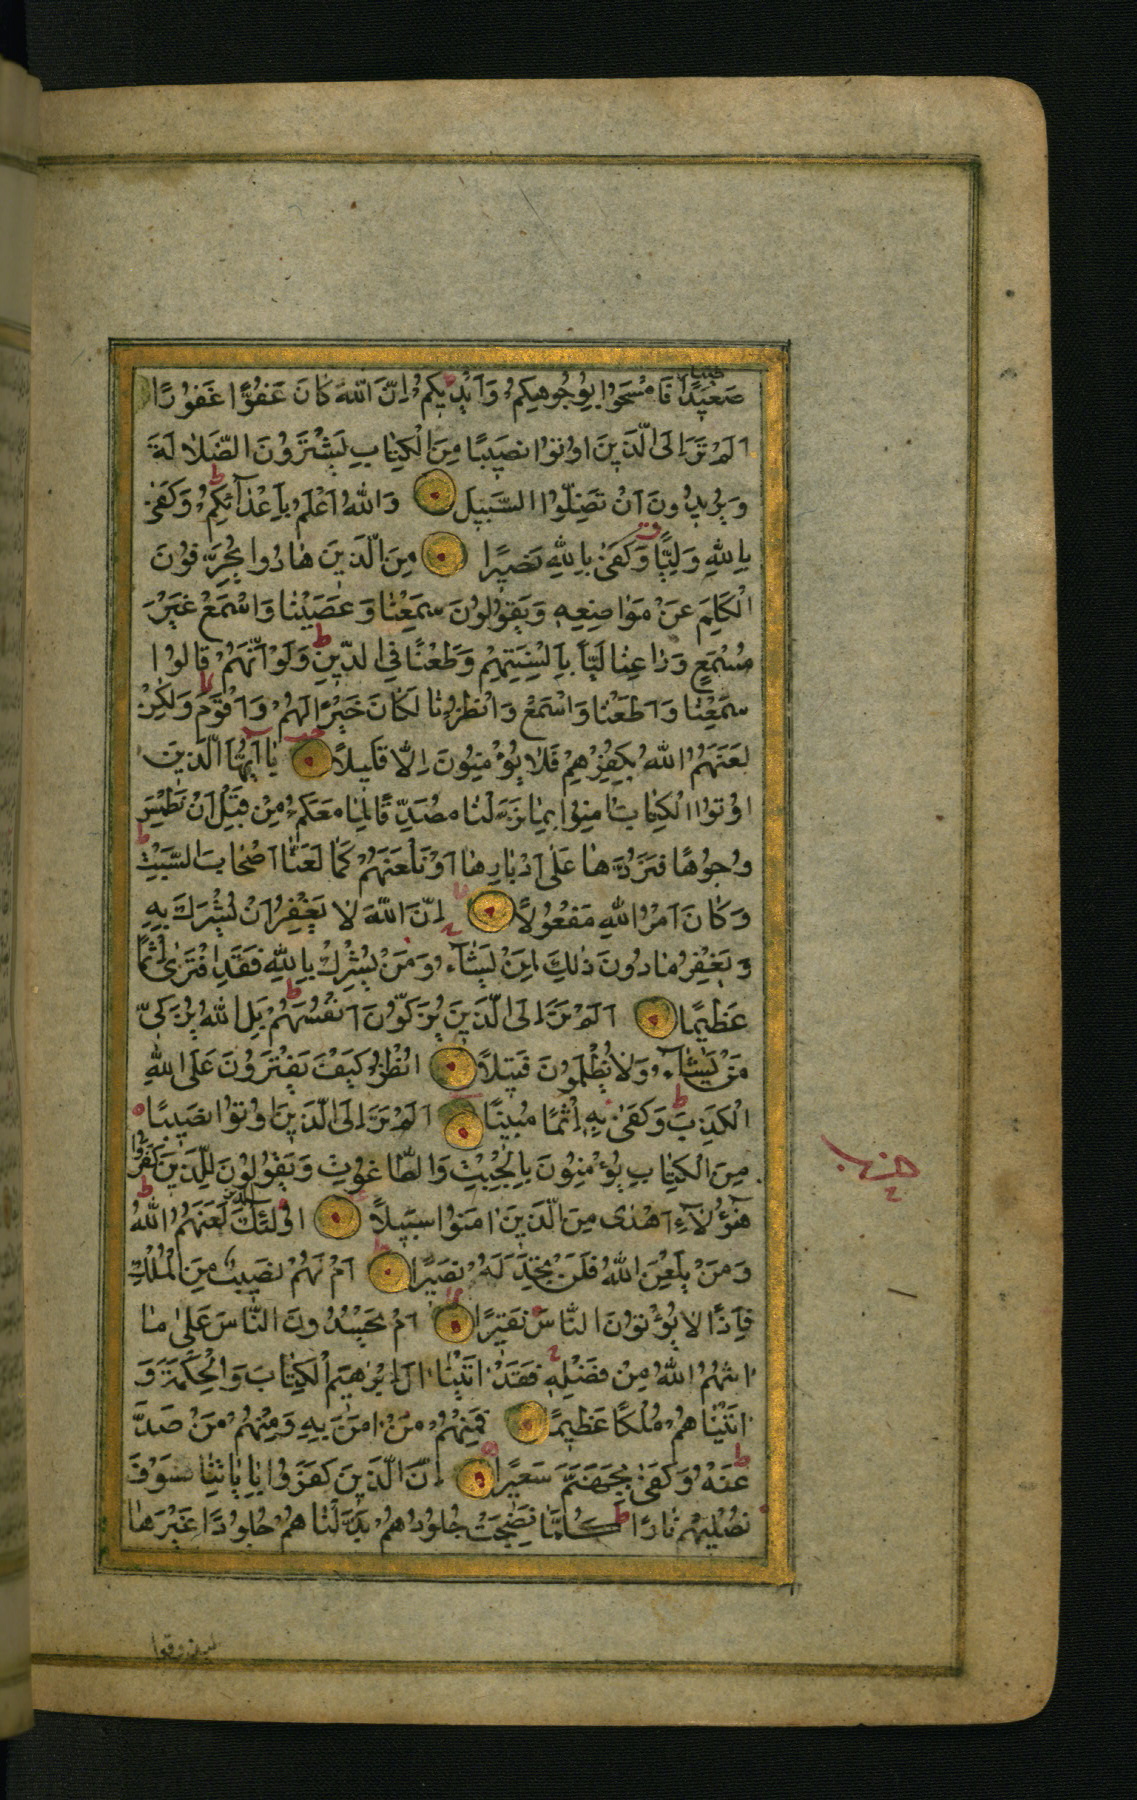 صَعِيدًا طيبا فَامْسَحُوا بِوُجُوهِكُمْ وَاَيْدِيكُمْ اِنَّ اللّٰهَ كَانَ عَفُوًّا غَفُورًا
اَلَمْ تَرَ اِلَى الَّذِينَ اُوتُوا نَصِيبًا مِنَ الْكِتَابِ يَشْتَرُونَ الضَّلَالَةَ
وَيُرِيدُونَ اَنْ تَضِلُّوا السَّبِيلَ وَاللّٰهُ اَعْلَمُ بِاَعْدَآئِكُمْ وَكَفٰى
بِاللّٰهِ وَلِيًّا وَكَفٰى بِاللّٰهِ نَصِيرًا مِنَ الَّذِينَ هَادُوا يُحَرِّفُونَ
الْكَلِمَ عَنْ مَوَاضِعِهِ وَيَقُولُونَ سَمِعْنَا وَعَصَيْنَا وَاسْمَعْ غَيْرَ
مُسْمَعٍ وَرَاعِنَا لَيًّا بِاَلْسِنَتِهِمْ وَطَعْنًا فِي الدِّينِ وَلَوْ اَنَّهُمْ قَالُوا
سَمِعْنَا وَاَطَعْنَا وَاسْمَعْ وَانْظُرْنَا لَكَانَ خَيْرًا لَهُمْ وَاَقْوَمَ وَلٰكِنْ
لَعَنَهُمُ اللّٰهُ بِكُفْرِهِمْ فَلَا يُؤْمِنُونَ اِلَّا قَلِيلًا يَا اَيُّهَا الَّذِينَ
اُوتُوا الْكِتَابَ اٰمِنُوا بِمَا نَزَّلْنَا مُصَدِّقًا لِمَا مَعَكُمْ مِنْ قَبْلِ اَنْ نَطْمِسَ
وُجُوهًا فَنَرُدَّهَا عَلٰى اَدْبَارِهَا اَوْ نَلْعَنَهُمْ كَمَا لَعَنَّا اَصْحَابَ السَّبْتِ
وَكَانَ اَمْرُ اللّٰهِ مَفْعُولًا اِنَّ اللّٰهَ لَا يَغْفِرُ اَنْ يُشْرَكَ بِهِ
وَيَغْفِرُ مَا دُونَ ذٰلِكَ لِمَنْ يَشَآءُ وَمَنْ يُشْرِكْ بِاللّٰهِ فَقَدِ افْتَرٰى اِثْمًا
عَظِيمًا اَلَمْ تَرَ اِلَى الَّذِينَ يُزَكُّونَ اَنْفُسَهُمْ بَلِ اللّٰهُ يُزَكِّي
مَنْ يَشَآءُ وَلَا يُظْلَمُونَ فَتِيلًا اُنْظُرْ كَيْفَ يَفْتَرُونَ عَلَى اللّٰهِ
الْكَذِبَ وَكَفٰى بِهِ اِثْمًا مُبِينًا اَلَمْ تَرَ اِلَى الَّذِينَ اُوتُوا نَصِيبًا
مِنَ الْكِتَابِ يُؤْمِنُونَ بِالْجِبْتِ وَالطَّاغُوتِ وَيَقُولُونَ لِلَّذِينَ كَفَرُوا
هٰؤُلَآءِ اَهْدٰى مِنَ الَّذِينَ اٰمَنُوا سَبِيلًا اُولٰئِكَ الذين لَعَنَهُمُ اللّٰهُ
وَمَنْ يَلْعَنِ اللّٰهُ فَلَنْ تَجِدَ لَهُ نَصِيرًا اَمْ لَهُمْ نَصِيبٌ مِنَ الْمُلْكِ
فَاِذًا لَا يُؤْتُونَ النَّاسَ نَقِيرًا اَمْ يَحْسُدُونَ النَّاسَ عَلٰى مَا
اٰتٰىهُمُ اللّٰهُ مِنْ فَضْلِهِ فَقَدْ اٰتَيْنَا اٰلَ اِبْرٰهِيمَ الْكِتَابَ وَالْحِكْمَةَ وَ
اٰتَيْنَاهُمْ مُلْكًا عَظِيمًا فَمِنْهُمْ مَنْ اٰمَنَ بِهِ وَمِنْهُمْ مَنْ صَدَّ
عَنْهُ وَكَفٰى بِجَهَنَّمَ سَعِيرًا اِنَّ الَّذِينَ كَفَرُوا بِاٰيَاتِنَا سَوْفَ
نُصْلِيهِمْ نَارًا كُلَّمَا نَضِجَتْ جُلُودُهُمْ بَدَّلْنَاهُمْ جُلُودًا غَيْرَهَا
حزب
ليذوقوا